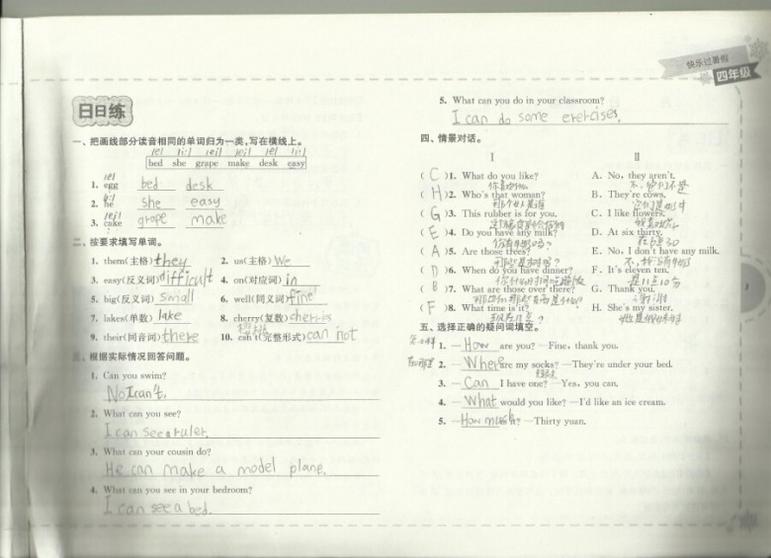 快乐过暑假
四年级
日日练
一、把画线部分读音相同的单词归为一类,写在横线上。
bed she grape make desk easy
1. egg bed desk
2. he she easy
3. cake grape make
二、按要求填写单词。
1. them(主格) they 2. us(主格) We
3. easy(反义词) difficult 4. on(对应词) in
5. big(反义词) small 6. well(同义词) fine
7. lakes(单数) lake 8. cherry(复数) cherries
9. their(同音词) there 10. can't(完整形式) can not
三、根据实际情况回答问题。
1. Can you swim?
No I can't.
2. What can you see?
I can see a ruler.
3. What can your cousin do?
He can make a model plane.
4. What can you see in your bedroom?
I can see a bed.
5. What can you do in your classroom?
I can do some exercises.
四、情景对话。
Ⅰ Ⅱ
( C )1. What do you like? A. No, they aren't.
( H )2. Who's that woman? B. They're cows.
( G )3. This rubber is for you. C. I like flowers.
( E )4. Do you have any milk? D. At six thirty.
( A )5. Are those trees? E. No, I don't have any milk.
( D )6. When do you have dinner? F. It's eleven ten.
( B )7. What are those over there? G. Thank you.
( F )8. What time is it? H. She's my sister.
五、选择正确的疑问词填空。
1. —How are you? —Fine, thank you.
2. —Where are my socks? —They're under your bed.
3. —Can I have one? —Yes, you can.
4. —What would you like? —I'd like an ice cream.
5. —How much is it? —Thirty yuan.